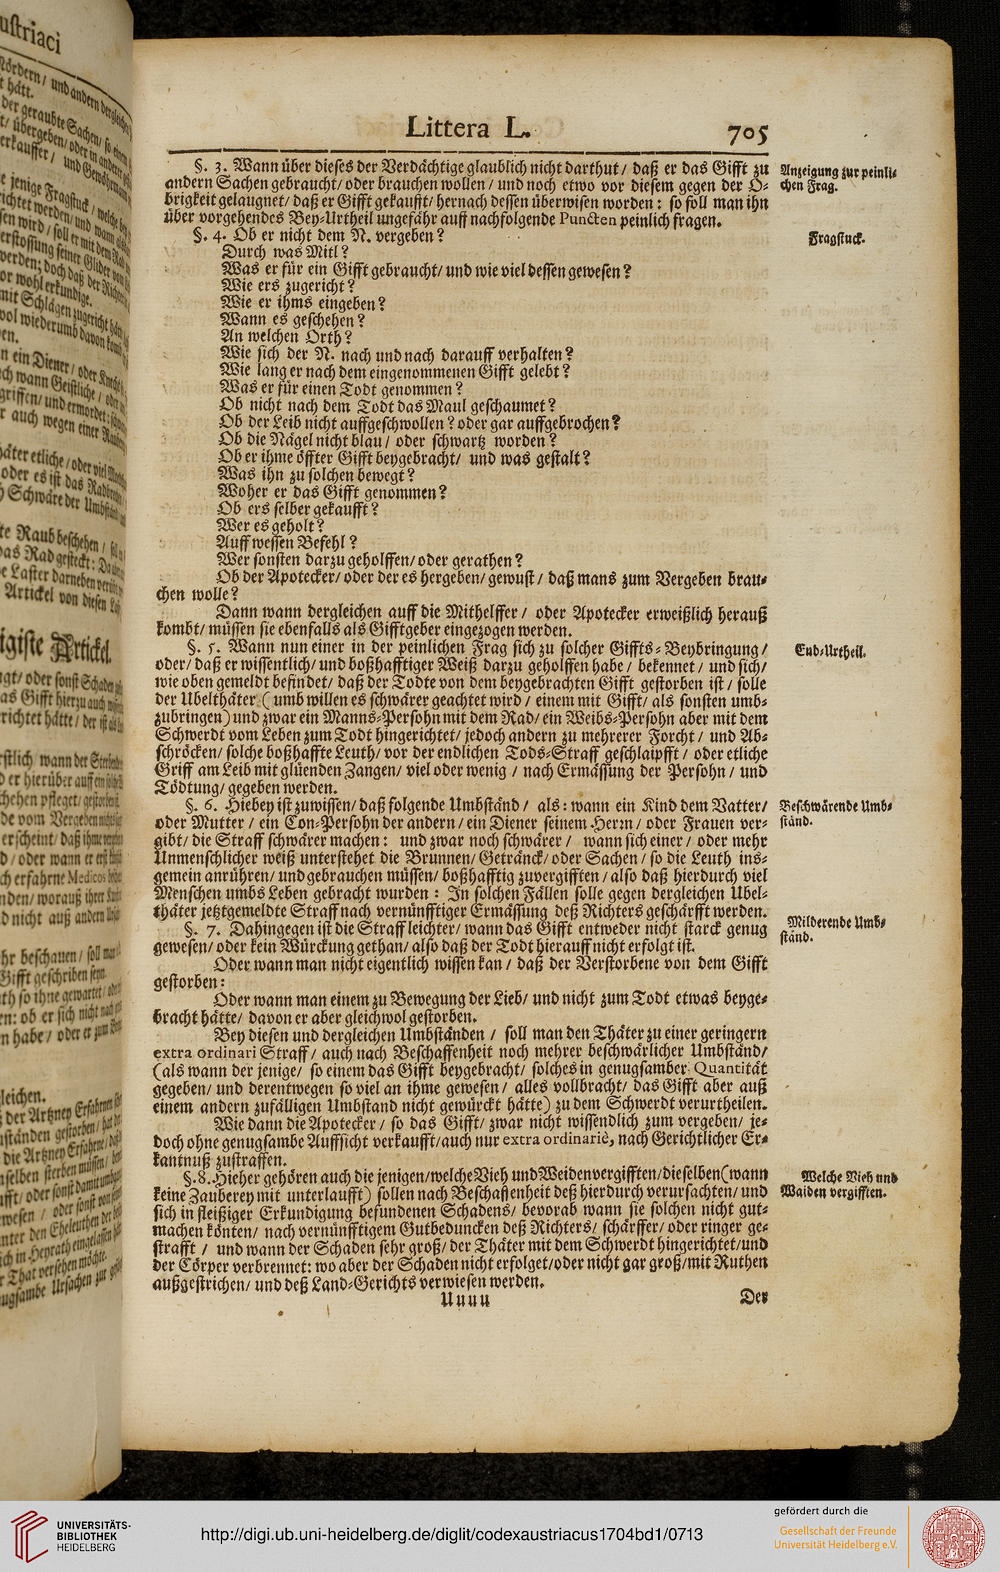 Littera L.
705
§. 3. Wann über dieses der Verdächtige glaublich nicht darthut / daß er das Gifft zu
andern Sachen gebraucht / oder brauchen wollen / und noch etwo vor diesem gegen der O-
brigkeit gelaugnet / daß er Gifft gekaufft / hernach dessen überwisen worden : so soll man ihn
über vorgehendes Bey-Urtheil ungefähr auff nachfolgende Puncten peinlich fragen.
Anzeigung zur peinli-
chen Frag.
§. 4. Ob er nicht dem N. vergeben?
Fragstuck.
Durch was Mitl?
Was er für ein Gifft gebraucht / und wie viel dessen gewesen?
Wie ers zugericht?
Wie er ihms eingeben?
Wann es geschehen?
An welchen Orth?
Wie sich der N. nach und nach darauff verhalten?
Wie lang er nach dem eingenommenen Gifft gelebt?
Was er für einen Todt genommen?
Ob nicht nach dem Todt das Maul geschaumet?
Ob der Leib nicht auffgeschwollen? oder gar auffgebrochen?
Ob die Nägel nicht blau / oder schwartz worden?
Ob er ihme öffter Gifft beygebracht / und was gestalt?
Was ihn zu solchen bewegt?
Woher er das Gifft genommen?
Ob ers selber gekaufft?
Wer es geholt?
Auff wessen Befehl?
Wer sonsten darzu geholffen / oder gerathen?
Ob der Apotecker / oder der es hergeben / gewust / daß mans zum Vergeben brau-
chen wolle?
Dann wann dergleichen auff die Mithelffer / oder Apotecker erweißlich herauß
kombt / müssen sie ebenfalls als Gifftgeber eingezogen werden.
§. 5. Wann nun einer in der peinlichen Frag sich zu solcher Giffts-Beybringung /
oder / daß er wissentlich / und boßhafftiger Weiß darzu geholffen habe / bekennet / und sich /
wie oben gemeldt befindet / daß der Todte von dem beygebrachten Gifft gestorben ist / solle
der Ubelthäter ( umb willen es schwärer geachtet wird / einem mit Gifft / als sonsten umb-
zubringen ) und zwar ein Manns-Persohn mit dem Rad / ein Weibs-Persohn aber mit dem
Schwerdt vom Leben zum Todt hingerichtet / jedoch andern zu mehrerer Forcht / und Ab-
schröcken / solche boßhaffte Leuth / vor der endlichen Tods-Straff geschlaipfft / oder etliche
Griff am Leib mit glüenden Zangen / viel oder wenig / nach Ermässung der Persohn / und
Tödtung / gegeben werden.
End-Urtheil.
§. 6. Hiebey ist zuwissen / daß folgende Umbständ / als : wann ein Kind dem Vatter /
oder Mutter / ein Con-Persohn der andern / ein Diener seinem Herrn / oder Frauen ver-
gibt / die Straff schwärer machen : und zwar noch schwärer / wann sich einer / oder mehr
Unmenschlicher weiß unterstehet die Brunnen / Getränck / oder Sachen / so die Leuth ins-
gemein anrühren / und gebrauchen müssen / boßhafftig zuvergifften / also daß hierdurch viel
Menschen umbs Leben gebracht wurden : In solchen Fällen solle gegen dergleichen Ubel-
thäter jetztgemeldte Straff nach vernünfftiger Ermässung deß Richters geschärfft werden.
Beschwärende Umb-
ständ.
§. 7. Dahingegen ist die Straff leichter / wann das Gifft entweder nicht starck genug
gewesen / oder kein Würckung gethan / also daß der Todt hierauff nicht erfolgt ist.
Milderende Umb-
ständ.
Oder wann man nicht eigentlich wissen kan / daß der Verstorbene von dem Gifft
gestorben :
Oder wann man einem zu Bewegung der Lieb / und nicht zum Todt etwas beyge-
bracht hätte / davon er aber gleichwol gestorben.
Bey diesen und dergleichen Umbständen / soll man den Thäter zu einer geringern
extra ordinari Straff / auch nach Beschaffenheit noch mehrer beschwärlicher Umbständ /
(als wann der jenige / so einem das Gifft beygebracht / solches in genugsamber Quantität
gegeben / und derentwegen so viel an ihme gewesen / alles vollbracht / das Gifft aber auß
einem andern zufälligen Umbstand nicht gewürckt hätte) zu dem Schwerdt verurtheilen.
Wie dann die Apotecker / so das Gifft / zwar nicht wissendlich zum vergeben / je-
doch ohne genugsambe Auffsicht verkaufft / auch nur extra ordinariè, nach Gerichtlicher Er-
kantnuß zustraffen.
§. 8. Hieher gehören auch die jenigen / welche Vieh und Weiden vergifften / dieselben (wann
keine Zauberey mit unterlaufft) sollen nach Beschaffenheit deß hierdurch verursachten / und
sich in fleißiger Erkundigung befundenen Schadens / bevorab wann sie solchen nicht gut-
machen könten / nach vernünfftigem Gutbeduncken deß Richters / schärffer / oder ringer ge-
strafft / und wann der Schaden sehr groß / der Thäter mit dem Schwerdt hingerichtet / und
der Cörper verbrennet : wo aber der Schaden nicht erfolget / oder nicht gar groß / mit Ruthen
außgestrichen / und deß Land-Gerichts verwiesen werden.
Welche Vieh und
Waiden vergifften.
Uuuu
Der
UNIVERSITÄTS-
BIBLIOTHEK
HEIDELBERG
http://digi.ub.uni-heidelberg.de/diglit/codexaustriacus1704bd1/0713
gefördert durch die
Gesellschaft der Freunde
Universität Heidelberg e.V.